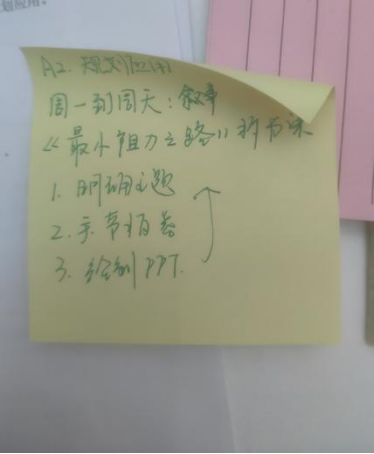 划应用。
A2. 规划应用
周一到周天：叙事
《最小阻力之路》拆书课
1. 明确主题
2. 
3. 绘制PPT.